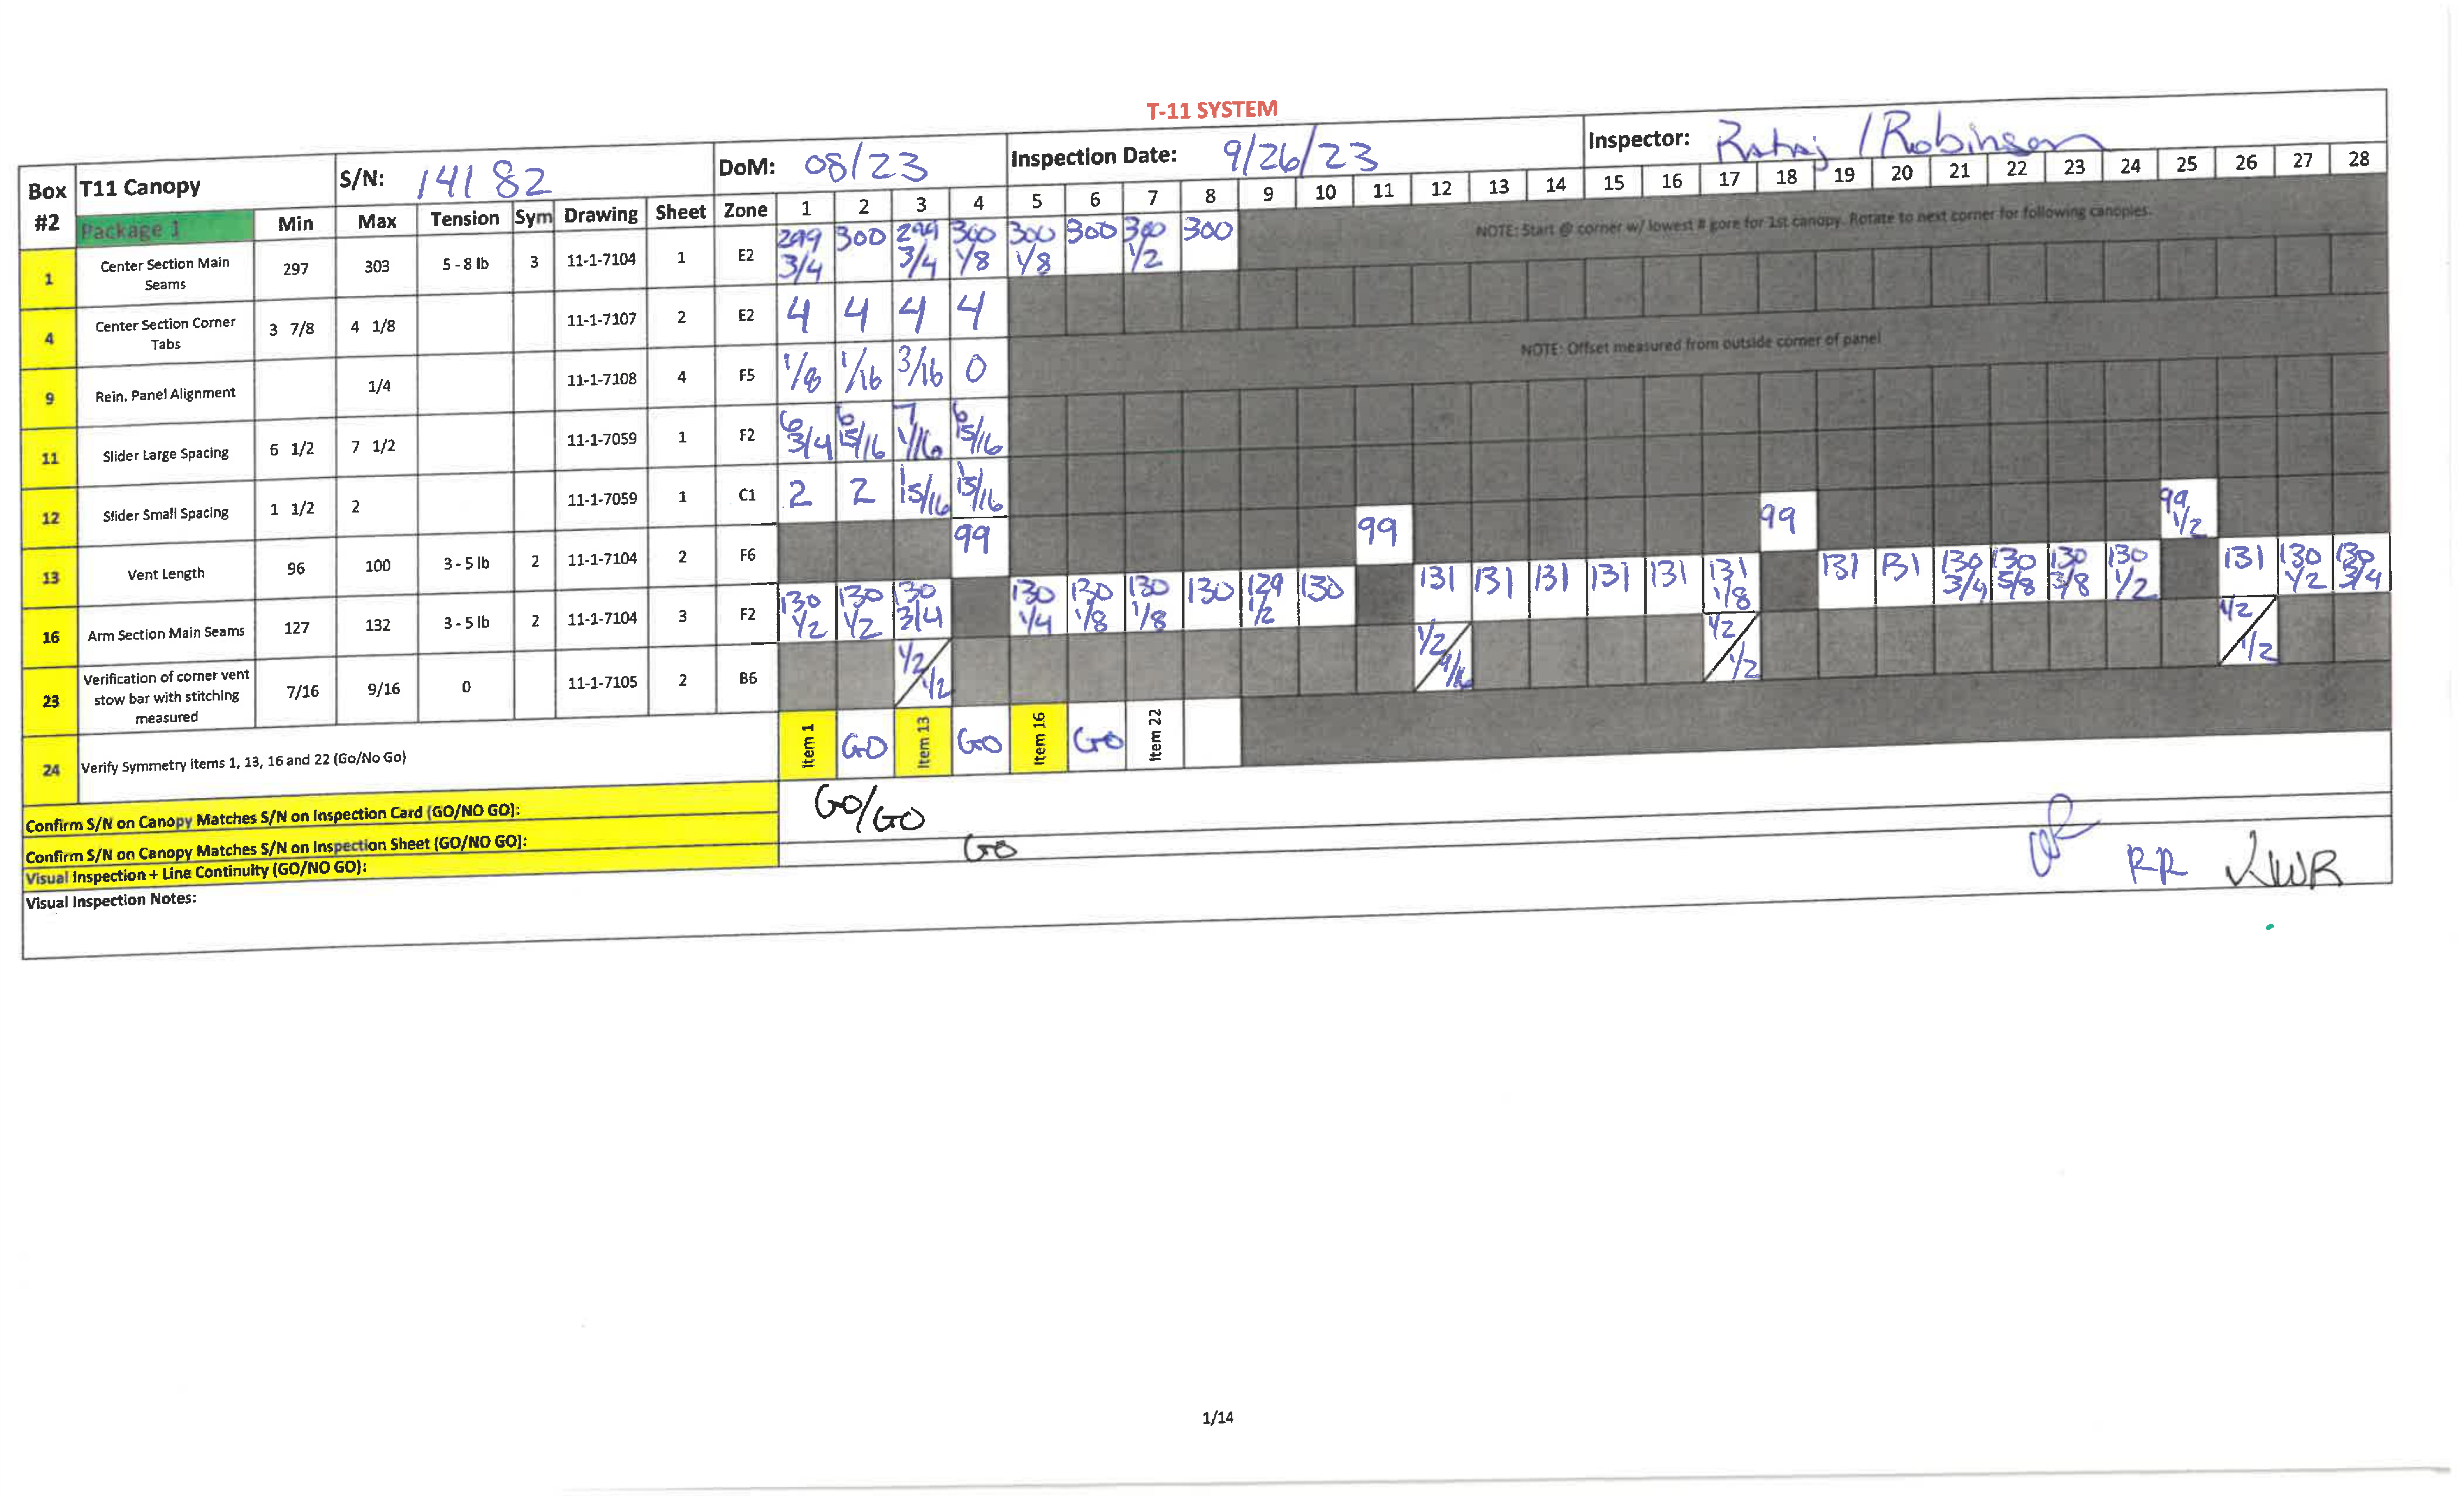 T-11 SYSTEM
Box #2 T11 Canopy S/N: 14182 DoM: 08/23 Inspection Date: 9/26/23 Inspector: Rataj / Robinson
Package 1 Min Max Tension Sym Drawing Sheet Zone 1 2 3 4 5 6 7 8 9 10 11 12 13 14 15 16 17 18 19 20 21 22 23 24 25 26 27 28
1 Center Section Main Seams 297 303 5 - 8 lb 3 11-1-7104 1 E2 299 3/4 300 299 3/4 300 1/8 300 1/8 300 300 1/2 300
NOTE: Start @ corner w/ lowest # gore for 1st canopy. Rotate to next corner for following canopies.
4 Center Section Corner Tabs 3 7/8 4 1/8 11-1-7107 2 E2 4 4 4 4
9 Rein. Panel Alignment 1/4 11-1-7108 4 F5 1/8 1/16 3/16 0
NOTE: Offset measured from outside corner of panel
11 Slider Large Spacing 6 1/2 7 1/2 11-1-7059 1 F2 6 3/4 6 15/16 7 1/16 6 15/16
12 Slider Small Spacing 1 1/2 2 11-1-7059 1 C1 2 2 1 15/16 1 15/16
13 Vent Length 96 100 3 - 5 lb 2 11-1-7104 2 F6 99 99 99 99 1/2
16 Arm Section Main Seams 127 132 3 - 5 lb 2 11-1-7104 3 F2 130 1/2 130 1/2 130 3/4 130 1/4 130 1/8 130 1/8 130 129 1/2 130 131 131 131 131 131 131 1/8 131 131 130 3/4 130 5/8 130 3/8 130 1/2 131 130 1/2 130 3/4
23 Verification of corner vent stow bar with stitching measured 7/16 9/16 0 11-1-7105 2 B6 1/2 / 1/2 1/2 / 9/16 1/2 / 1/2 1/2 / 1/2
24 Verify Symmetry items 1, 13, 16 and 22 (Go/No Go) Item 1 GO Item 13 GO Item 16 GO Item 22
Confirm S/N on Canopy Matches S/N on Inspection Card (GO/NO GO): GO/GO
Confirm S/N on Canopy Matches S/N on Inspection Sheet (GO/NO GO):
Visual Inspection + Line Continuity (GO/NO GO): GO
RR KWR
Visual Inspection Notes:
1/14